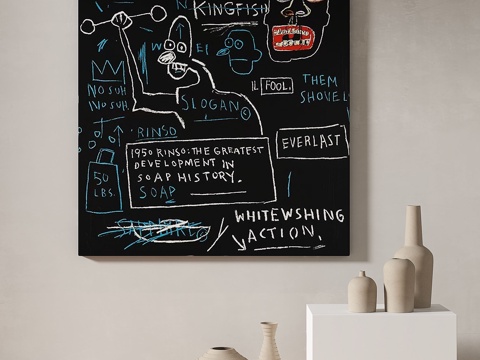 KINGFISH
NO SUH
NO SUH.
SLOGAN©
IL FOOL.
THEM
SHOVEL
RINSO
EVERLAST
1950 RINSO: THE GREATEST
DEVELOPMENT IN
SOAP HISTORY.
SOAP
50
LBS.
WHITEWSHING
ACTION.